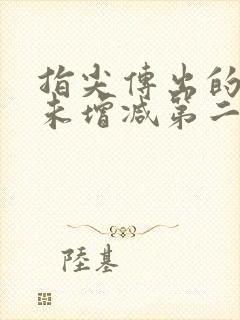 指尖傳出的
未增減第二
陸基